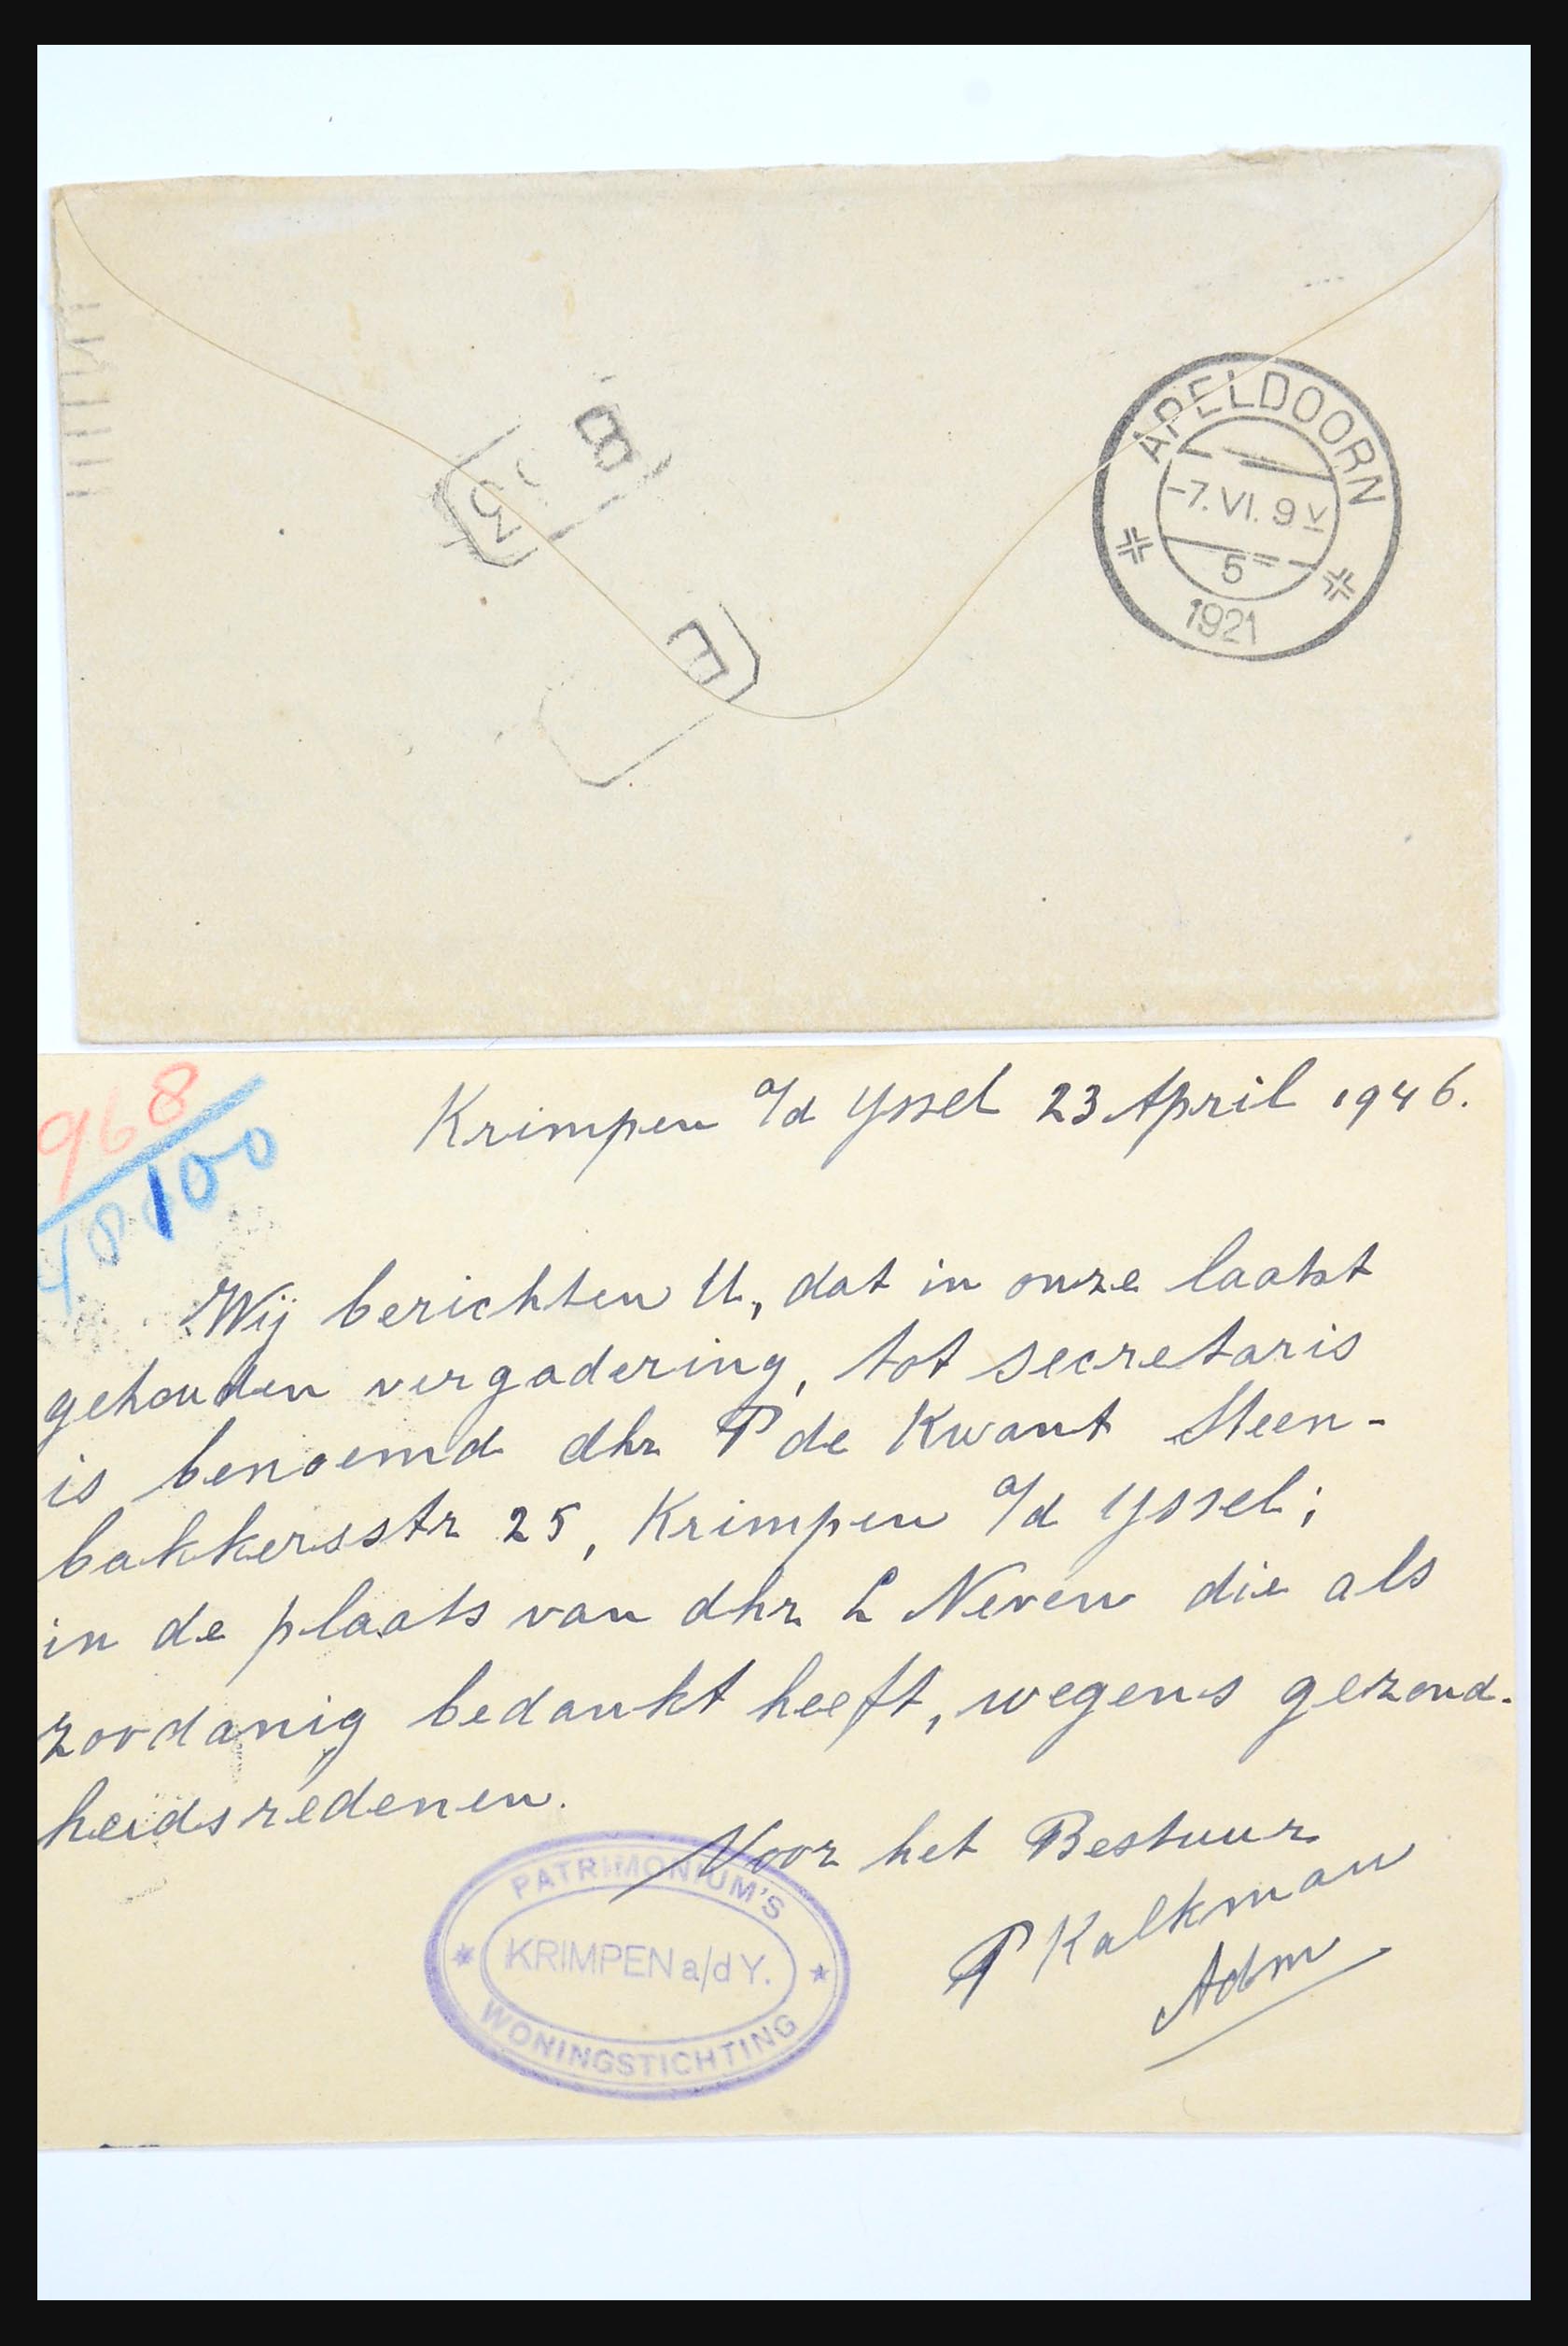 APELDOORN
-7. VI. 9 V
5
1921
B
3
E
968
100
Krimpen a/d Yssel 23 April 1946.
Wij berichten U, dat in onze laatst
gehouden vergadering, tot secretaris
is benoemd dhr P de Kwant Steen-
bakkersstr 25, Krimpen a/d Yssel;
in de plaats van dhr L Neven die als
zoodanig bedankt heeft, wegens gezond-
heidsredenen.
Voor het Bestuur
P Kalkman
Adm
PATRIMONIUM'S
KRIMPEN a/d Y.
WONINGSTICHTING